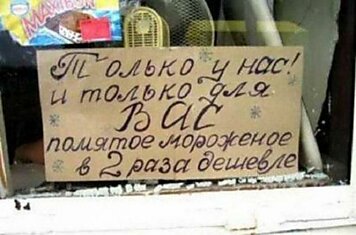 МАХІВОН
Только у нас!
и только для
ВАС
помятое мороженое
в 2 раза дешевле